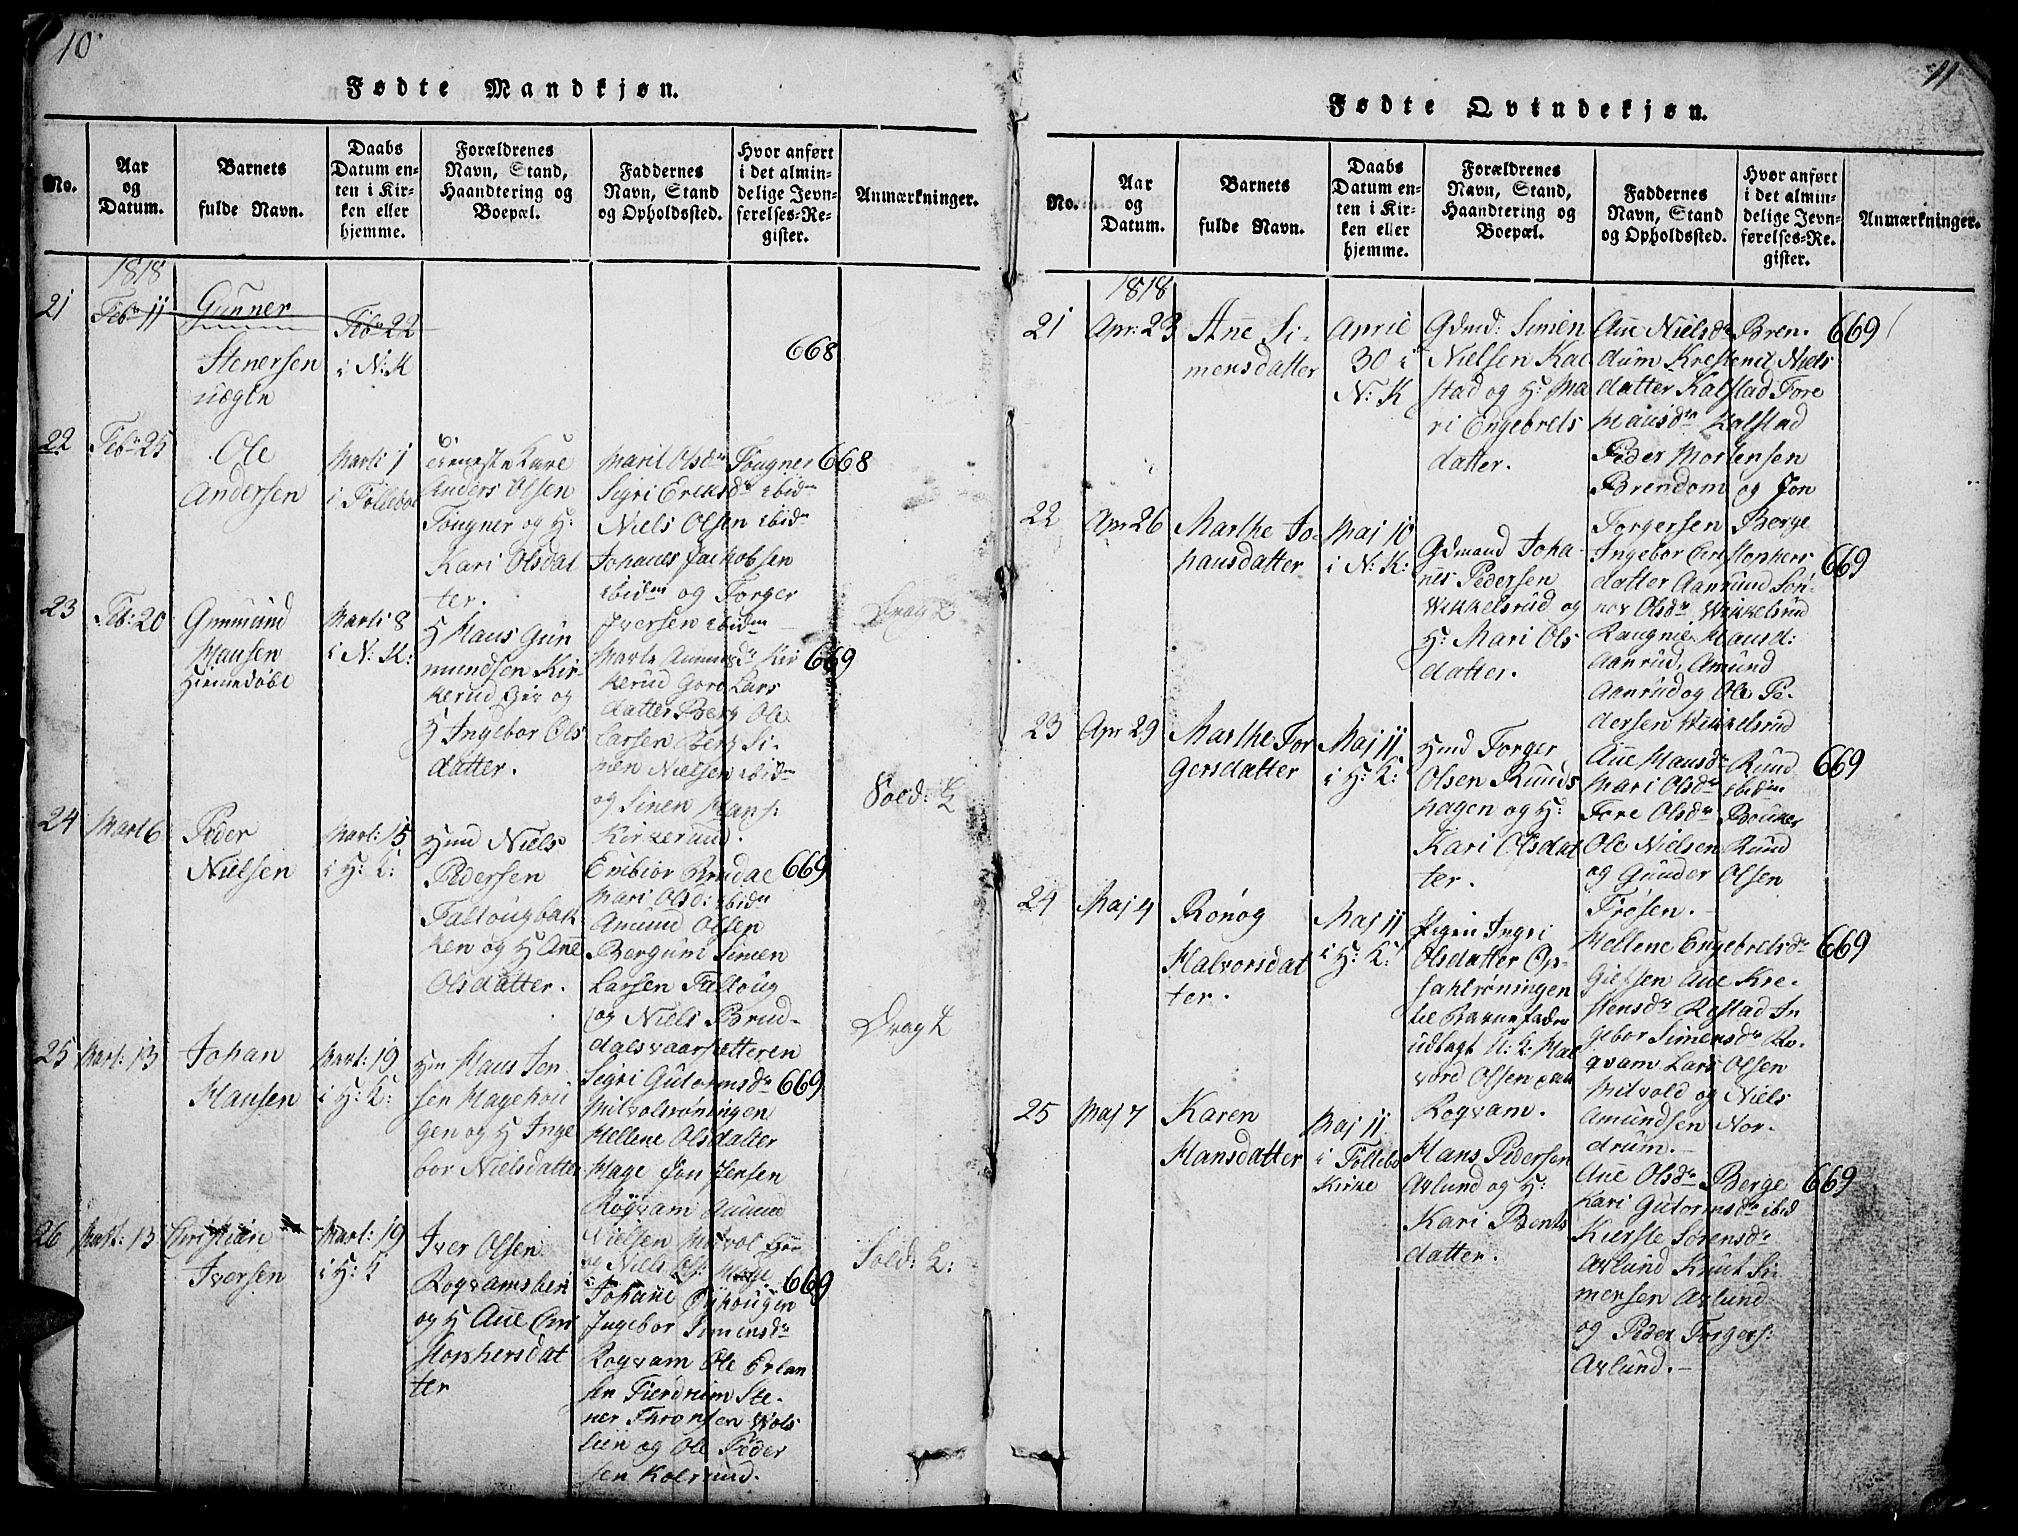 10
Fødte Mandkjøn.
No.
Aar
og
Datum.
Barnets
fulde Navn.
Daabs
Datum en-
ten i Kir-
ken eller
hjemme.
Forældrenes
Navn, Stand,
Haandtering og
Boepæl.
Faddernes
Navn, Stand
og Opholdssted.
Hvor anført
i det almin-
delige Jevn-
førelses-Re-
gister.
Anmærkninger.
1818
21
Feb 11
Gunner
Stenersen
uægte
Feb 22
i N: K
668
22
Feb 25
Ole
Andersen
Marti 1
i Follebo
Anders Olsen
Fougner og H:
Kari Olsdat
ter.
Marit Olsdr Fougner
Sigri Eriksdr ibidm
Niels Olsen ibidm
Johanes Jachobsen
ibidm og Torger
Iversen ibidm
668
23
Feb: 20
Gunmund
Hansen
Hiemedøbt
Marti 8
i N: K:
H Hans Gun
mundsen Kir-
kerud Eier og
H Ingebor Ols
datter.
Kir
kerud Goro Lars
datter Berg Ole
Larsen Berg Si-
men Nielsen ibidm
og Simen Hans:
Kirkerud.
669
24
Mart 6
Peder
Nielsen
Mart: 15
i H: K:
Hmd Niels
Pedersen
Fallougbak
ken og H Ane
Olsdatter.
Mari Olsd: ibidm
Amund Olsen
Bergum Simen
Larsen Falloug
og Niels Brud-
dalsvaarsetteren
669
Sold: K
25
Mart: 13
Johan
Hansen
Mart: 19
i H: K:
Hm Hans Jen
sen Hageholi
gen og H Inge
bor Nielsdatter
Sigri Gutormsdr
Mitvolsrøningen
Hellene Olsdatter
Hage Jon Jensen
Rogvam Amund
Nielsen Mitvol
og Niels Ols: Hage
669
Drag K
26
Mart: 13
Christian
Iversen
Mart: 19
i H: K
Iver Olsen
Rogvamsheri
og H Ane Chri
stophersdat
ter
Johane
Ingebor Simensdr
Rogvam Ole Erlan
sen Fierdrum Ste-
ner Thronsen Wols
lien og Ole Peder
sen Kolsrud.
669
Sold: K:
11
Fødte Qvindekjøn.
No.
Aar
og
Datum.
Barnets
fulde Navn.
Daabs
Datum en-
ten i Kir-
ken eller
hjemme.
Forældrenes
Navn, Stand,
Haandtering og
Boepæl.
Faddernes
Navn, Stand
og Opholdssted.
Hvor anført
i det almin-
delige Jevn-
førelses-Re-
gister.
Anmærkninger.
1818
21
Apr: 23
Ane Si-
mensdatter
Aprie
30 i
N: K
Gdmd: Simen
Nielsen Kal
stad og H: Ma
ri Engebrets
datter.
Ane Nielsdr Bren-
dum Krestend Niels
datter Kalstad Tore
Hansdr Kalstad
Peder Mortensen
Brendom og Jon
Torgersen Berge
669
22
Apr 26
Marthe Jo-
hansdatter
Maj 10
i N: K:
Gdmand Joha-
nes Pedersen
Wikkelsrud og
H: Mari Ols
datter.
Ingebor Christophers
datter Aanrund Søn-
nov Olsdr Wikkelsrud
Rangnie Hansd:
Aanrud, Amund
Aanrud og Ole Pe-
dersen Wikkelsrud
669
23
Apr 29
Marthe Tor
gersdatter
Maj 11
i H: K:
Hmd Torger
Olsen Ruuds
hagen og H:
Kari Olsdat
ter.
Ane Hansdr Ruud
Mari Olsdr ibidm
Tore Olsdr
Ole Nielsen Ruud
og Gunder Olsen
Frøsen.
669
24
Maj 4
Rønøg
Halvorsdat
ter.
Maj 11
i H: K:
Pigen Ingri
Olsdatter Op-
sahlrøningen
til Barnefader
udlagt U: K: Hal
vord Olsen paa
Rogvam.
Hellene Engebretsdr
Gielsen Ane Kre-
stensdr Refstad In
gebor Simensdr Ro-
gvam Lars Olsen
Mitvold og Niels
Amundsen Nor-
drum.
669
25
Maj 7
Karen
Hansdatter
Maj 11
i Follebo
Kirke
Hans Pedersen
Avlund og H:
Kari Bents
datter.
Ane Olsdr Berge
Kari Gutormsdr ibid
Kierste Sorensdr
Avlund Knut Si
mensen Avlund
og Peder Torgers:
Avlund.
669